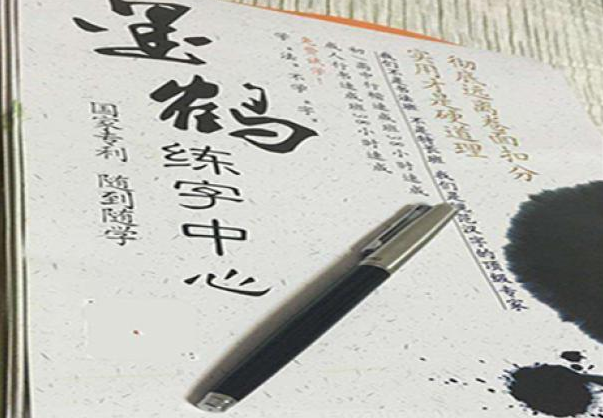 墨鹤
练字中心
国家专利 随到随学
免费试学!
学·法·不学·字·
初/高中行楷速成班36小时速成
成人行书速成班36小时速成
我们不是书法班 不是特长班 我们是规范汉字的顶级专家
实用才是硬道理
彻底远离卷面扣分